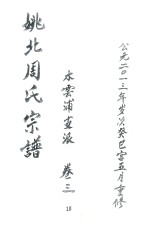 公元二〇一三年岁次癸巳宫五月重修
水雲浦支派 卷三
姚北周氏宗譜
18